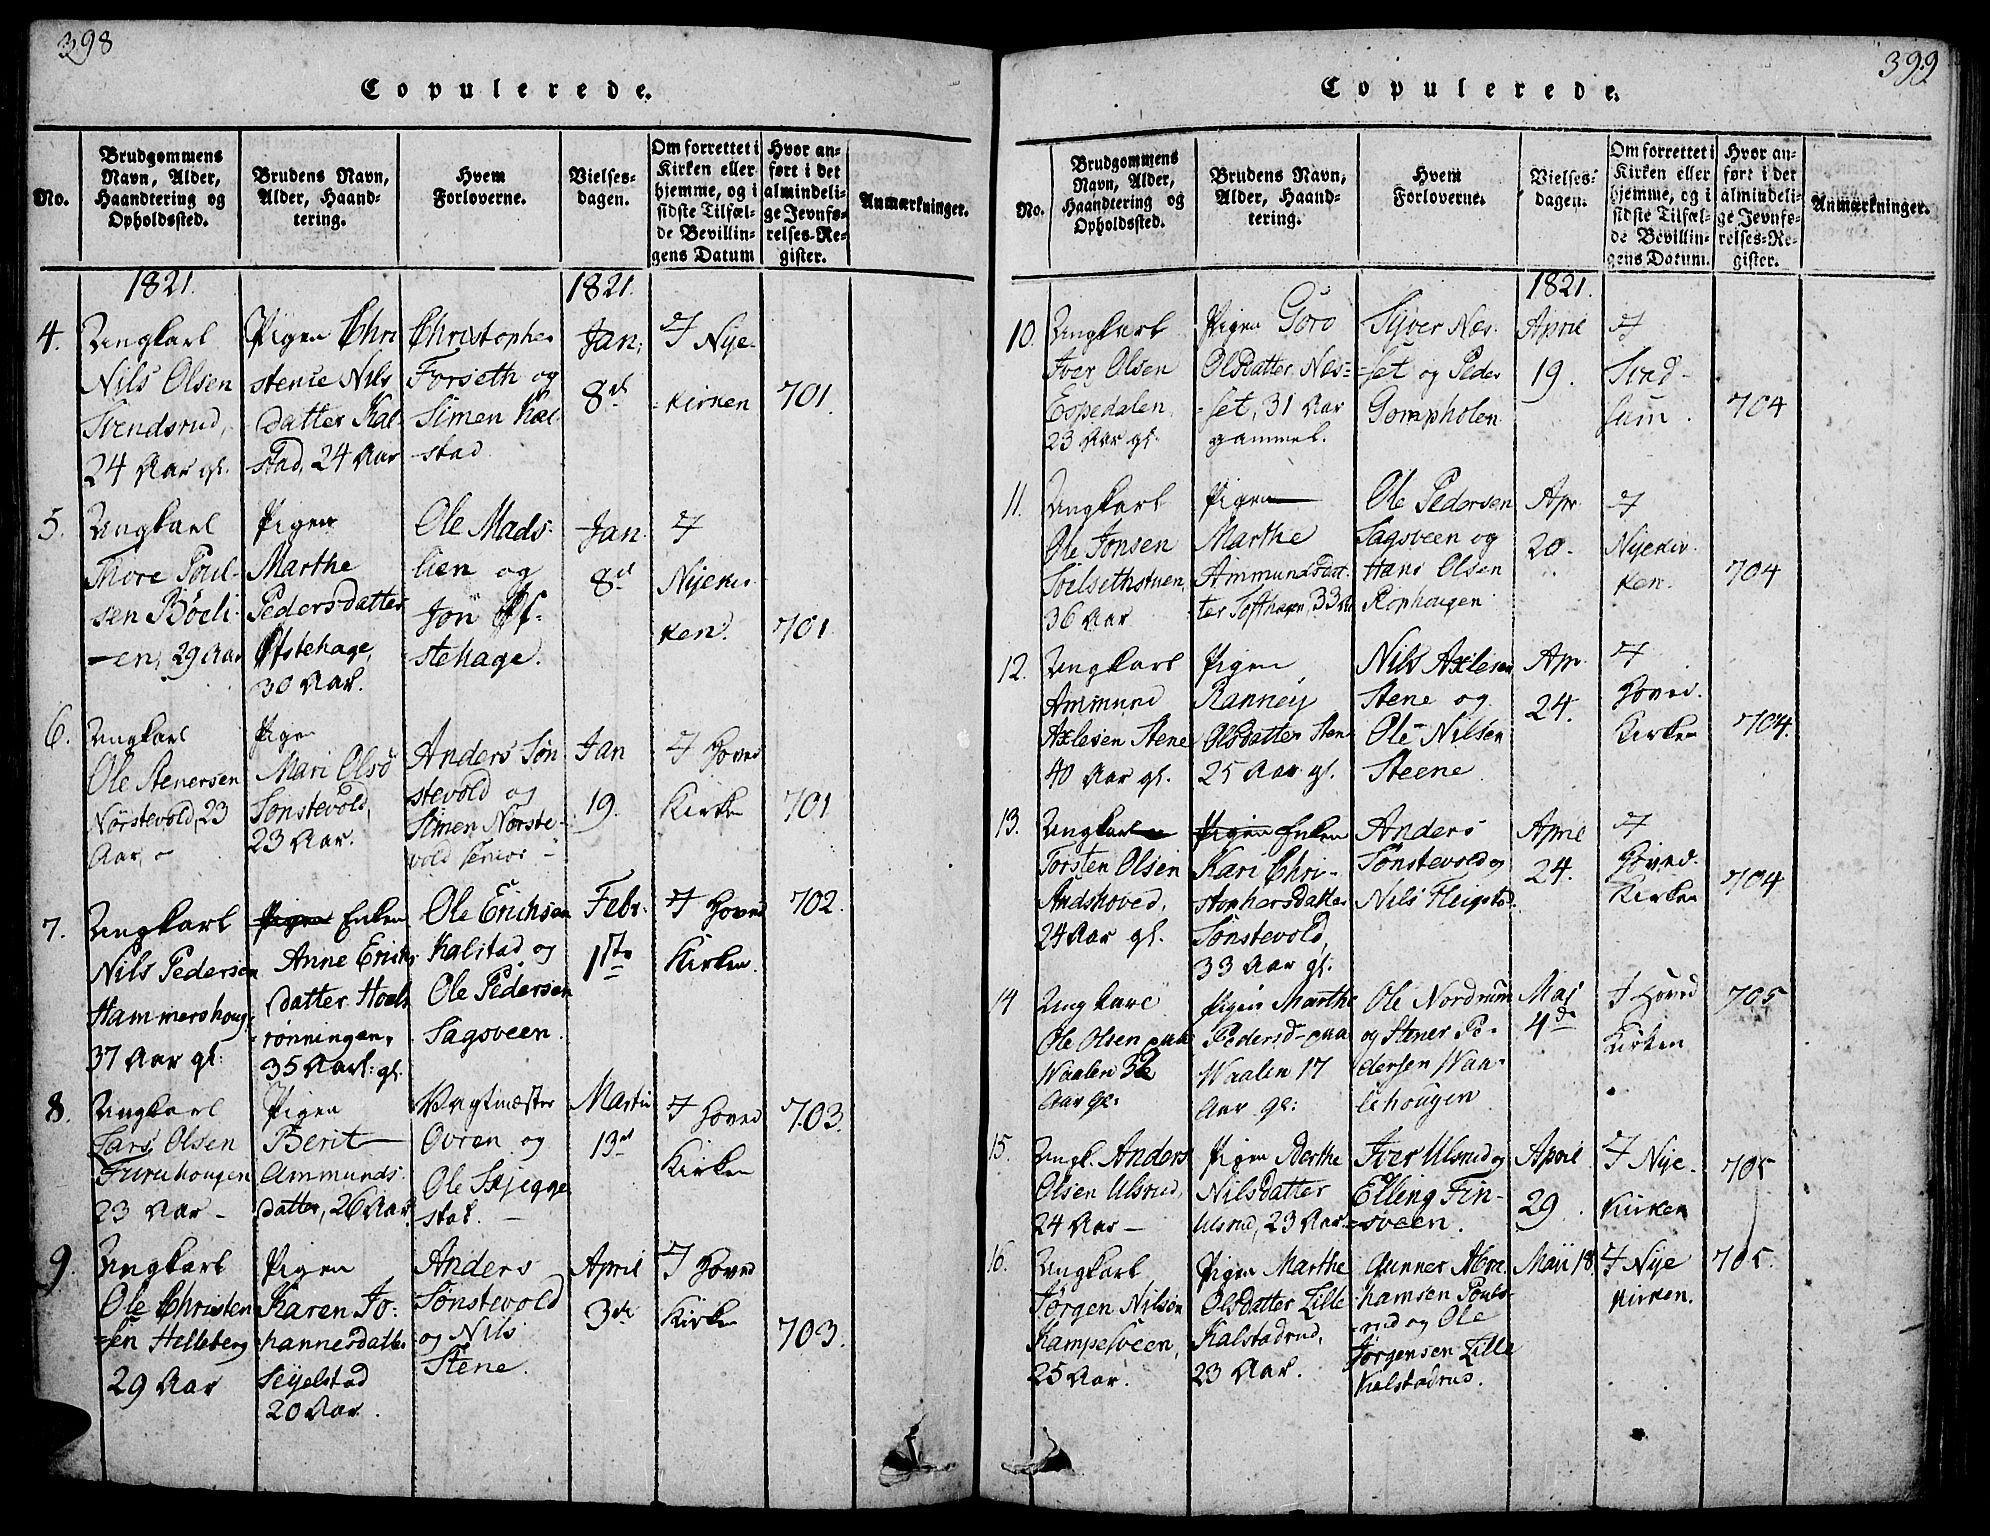 398
Copulerede.
No.
Brudgommens
Navn, Alder,
Haandtering og
Opholdssted.
Brudens Navn,
Alder, Haand-
tering.
Hvem
Forloverne.
Vielses-
dagen.
Om forrettet i
Kirken eller
hjemme, og i
sidste Tilfæl-
de Bevillin-
gens Datum
Hvor an-
ført i det
almindeli-
ge Jevnfø-
relses-Re-
gister.
Anmærkninger.
1821.
1821.
4.
Ungkarl
Nils Olsen
Stendsrud,
24 Aar gl.
Pigen Chri
stense Nils
datter Kal-
stad, 24 Aar
Christopher
Forseth og
Simen Kal
-stad
Jan:
8de
I Nye-
-kirken
701.
5.
Ungkarl
Thore Poul-
sen Böeli-
-en, 29 Aar
Pigen
Marthe
Pedersdatter
Ofstehage,
30 Aar.
Ole Mads-
lien og
Jon Of-
-stehage.
Jan.
8d
I
Nyekir-
ken.
701.
6.
Ungkarl
Ole Stenersen
Norstevold, 23
Aar,
Pigen
Mari Olsd
Sönstevold,
23 Aar.
Anders Sön
stevold og
Simen Norste-
vold senior
Jan
19.
I Hoved
Kirken
701
7.
Ungkarl
Nils Pedersen
Hammershoug,
37 Aar gl:
Pigen Enken
Anne Erichs
datter Hoels
rönningen,
35 Aar gl.
Ole Erichsen
Kalstad og
Ole Pedersen
Sagsveen.
Febr.
1ste
I Hoved
Kirken.
702.
8.
Ungkarl
Lars Olsen
Furuhougen
23 Aar -
Pigen
Berit
Ammunds-
datter, 26 Aar.
Vagtmester
Ovren og
Ole Skjegge
stad.
Martii
13de
I Hoved
Kirken
703.
9.
Ungkarl
Ole Christen
-sen Helleberg
29 Aar
Pigen
Karen Jo-
hannesdatter
Seyelstad
20 Aar.
Anders
Sönstevold
og Nils
Stene.
April
3de
I Hoved
Kirken
703.
399
Copulerede.
No.
Brudgommens
Navn, Alder,
Haandtering og
Opholdssted.
Brudens Navn,
Alder, Haand-
tering.
Hvem
Forloverne.
Vielses-
dagen.
Om forrettet i
Kirken eller
hjemme, og i
sidste Tilfæl-
de Bevillin-
gens Datum.
Hvor an-
ført i det
almindeli-
ge Jevnfø-
relses-Re-
gister.
Anmærkninger.
1821.
10.
Ungkarl
Iver Olsen
Espedalen
23 Aar gl.
Pigen Goro
Olsdatter Nes-
-set, 31 Aar
gammel.
Syver Nes-
-set og Peder
Gompholen
April
19.
I
704
11.
Ungkarl
Ole Jonsen
36 Aar
Pigen
Marthe
Ammundsdat-
ter 33 Aar
Ole Pedersen
Sagsveen og
Hans Olsen
Rophougen
Apr.
20.
I
Nyekir-
ken.
704
12.
Ungkarl
Ammund
Axlesen Stene
40 Aar gl.
Pigen
Ranney
Olsdatter Sten
25 Aar gl.
Nils Axlesen
Stene og
Ole Nilsen
Steene
Apr.
24.
I
Hoved-
Kirken
704.
13.
Ungkarl
Torsten Olsen
Andshoved,
24 Aar gl.
Pigen Enken
Kari Chri-
stophersdatter
Sönstevold,
33 Aar gl.
Anders
Sönstevold og
Nils Fleigstad.
April
24.
I
Hoved-
Kirken
704
14
Ungkarl
Ole Olsen paa
Waalen 32
Aar gl:
Pigen Marthe
Pedersd- paa
Waalen 17
Aar gl:
Ole Nordrum
og Stener Pe-
dersen Waa-
lehougen
Maj
4de
I Hoved
Kirken
705
15.
Ungk. Anders
Olsen Ulsrud,
24 Aar -
Pigen Berthe
Nilsdatter
Ulsrud, 23 Aar
Iver Ulsrud og
Elling Fin-
-sveen.
April
29.
I Nye-
Kirken
705
16.
Ungkarl
Jörgen Nilsen
Kampesveen,
25 Aar.
Pigen Marthe
Olsdatter Lille
Kalstadrud,
23 Aar.
Gunner Abra
hamsen Pouls-
-rud og Ole
Jörgensen Lille
Kalstadrud.
Maii 18.
I Nye
Kirken.
705.